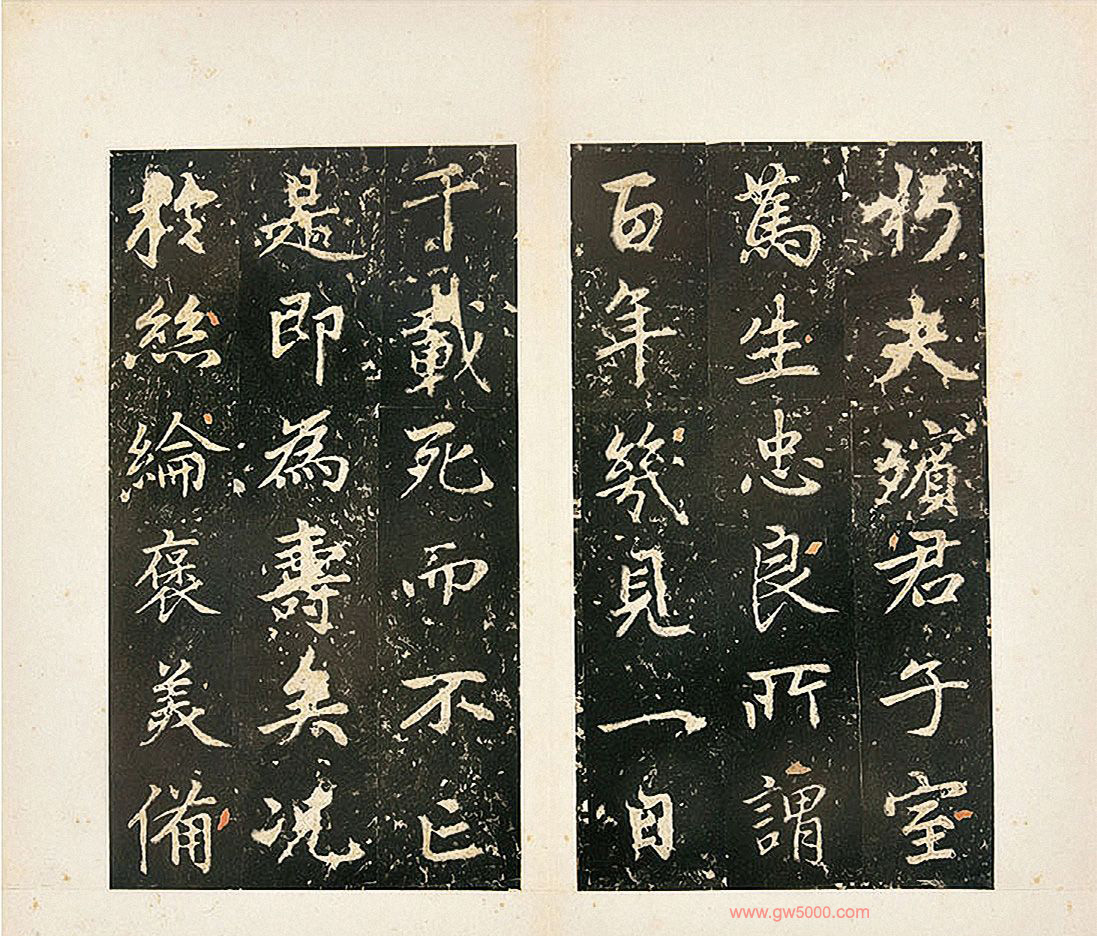 朽夫殯君子室
篤生忠良所謂
百年幾見一自
千載死而不亡
是即為壽矣況
於絲綸褒美備
www.gw5000.com